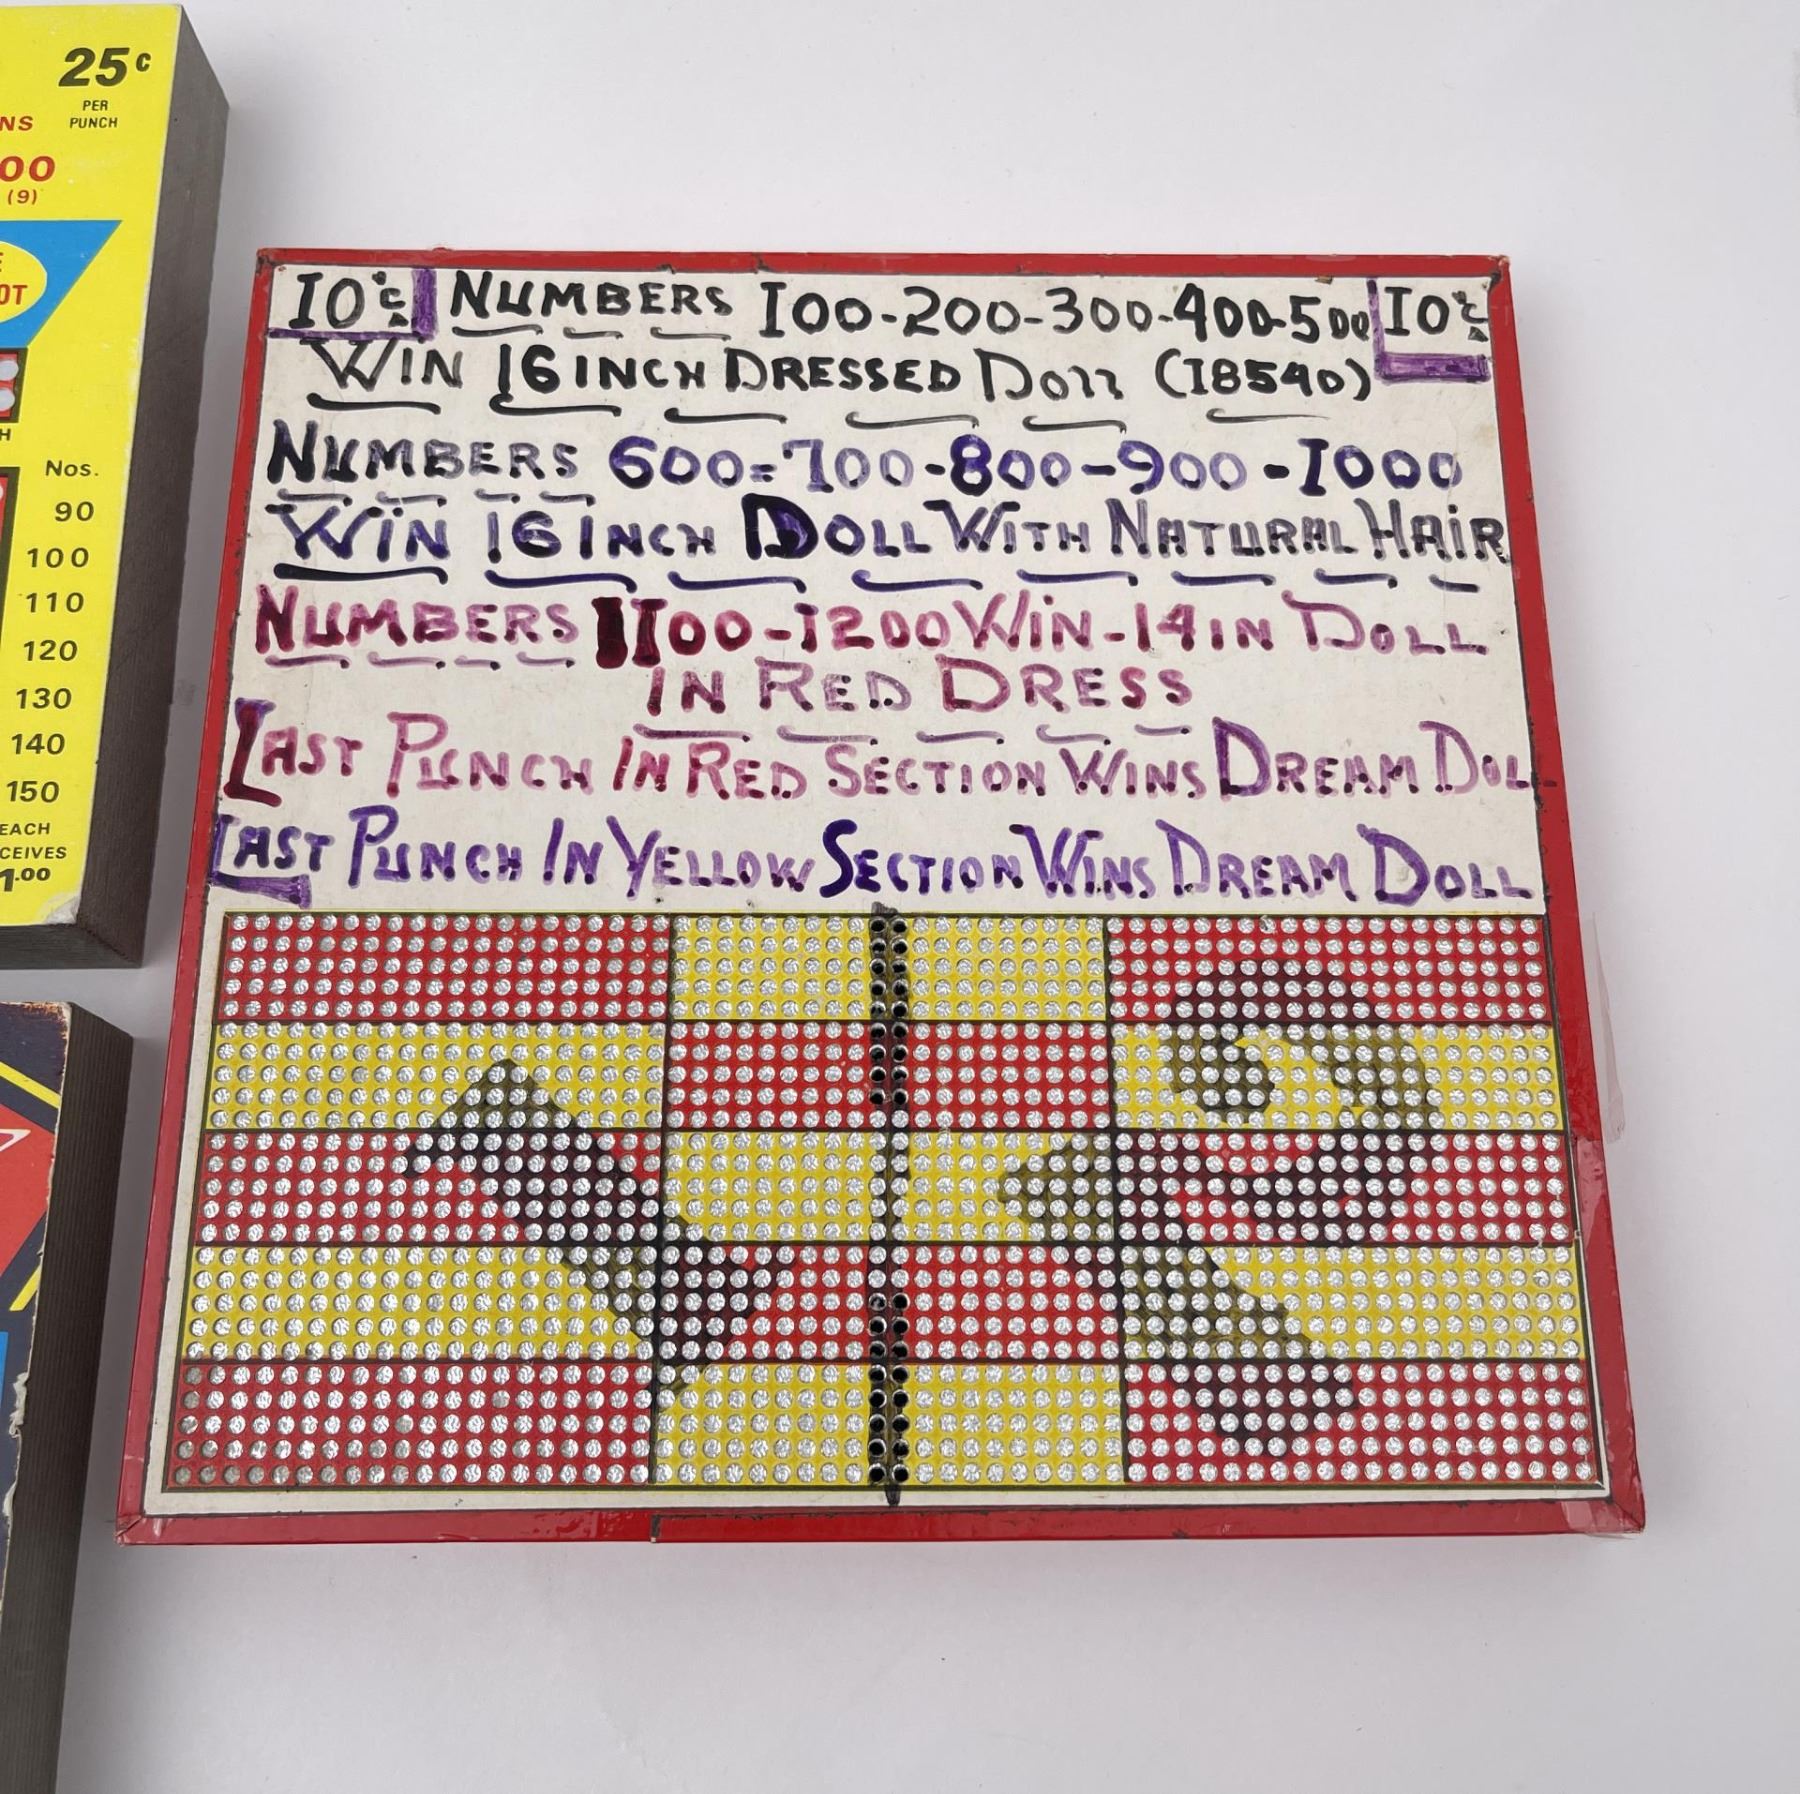 25¢
PER
PUNCH
NS
00
(9)
E
OT
H
Nos.
90
100
110
120
130
140
150
EACH
CEIVES
1.00
10¢ NUMBERS 100-200-300-400-500 10¢
WIN 16 INCH DRESSED DOLL (18540)
NUMBERS 600=700-800-900-1000
WIN 16 INCH DOLL WITH NATURAL HAIR
NUMBERS 1100-1200 WIN-14 IN DOLL
IN RED DRESS
LAST PUNCH IN RED SECTION WINS DREAM DOL
LAST PUNCH IN YELLOW SECTION WINS DREAM DOLL